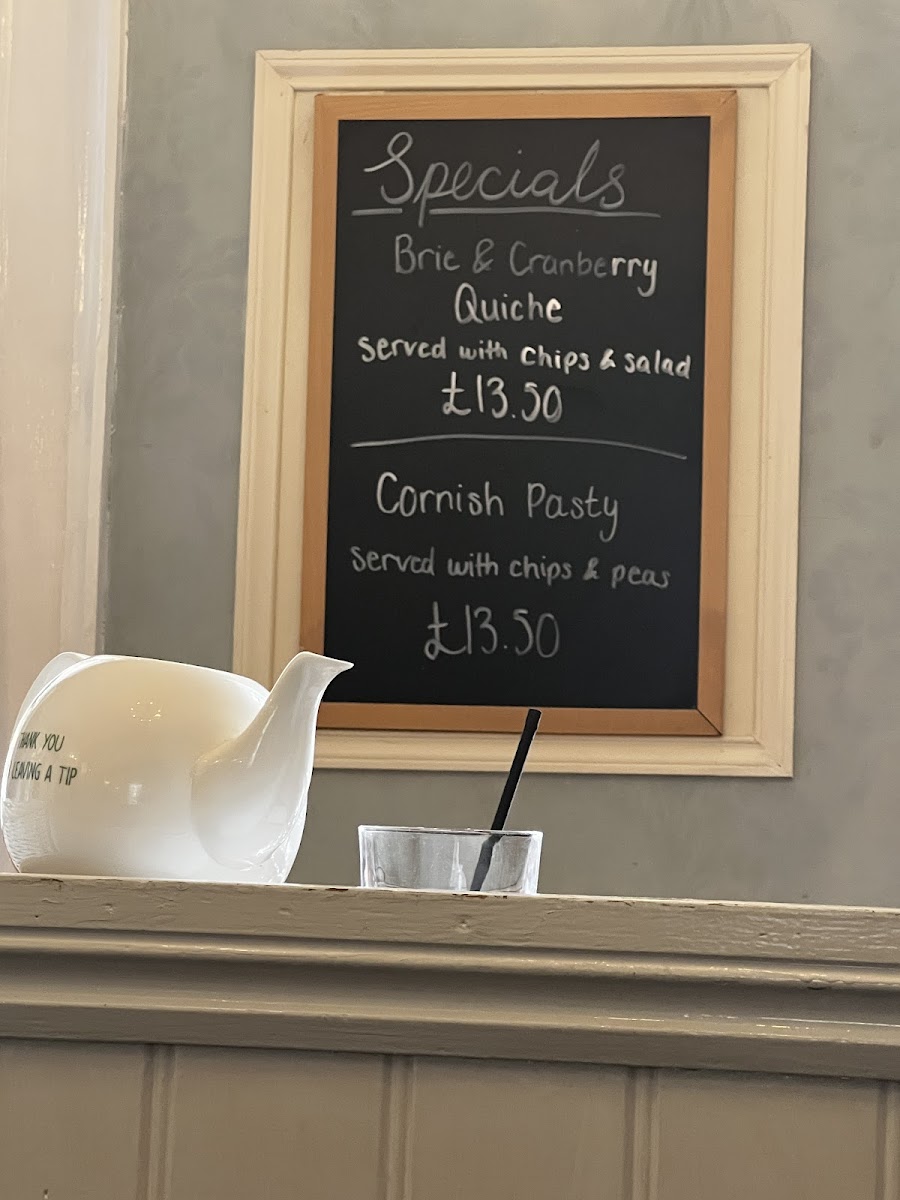 Specials
Brie & Cranberry
Quiche
Served with chips & salad
£13.50
Cornish Pasty
Served with chips & peas
£13.50
THANK YOU
LEAVING A TIP